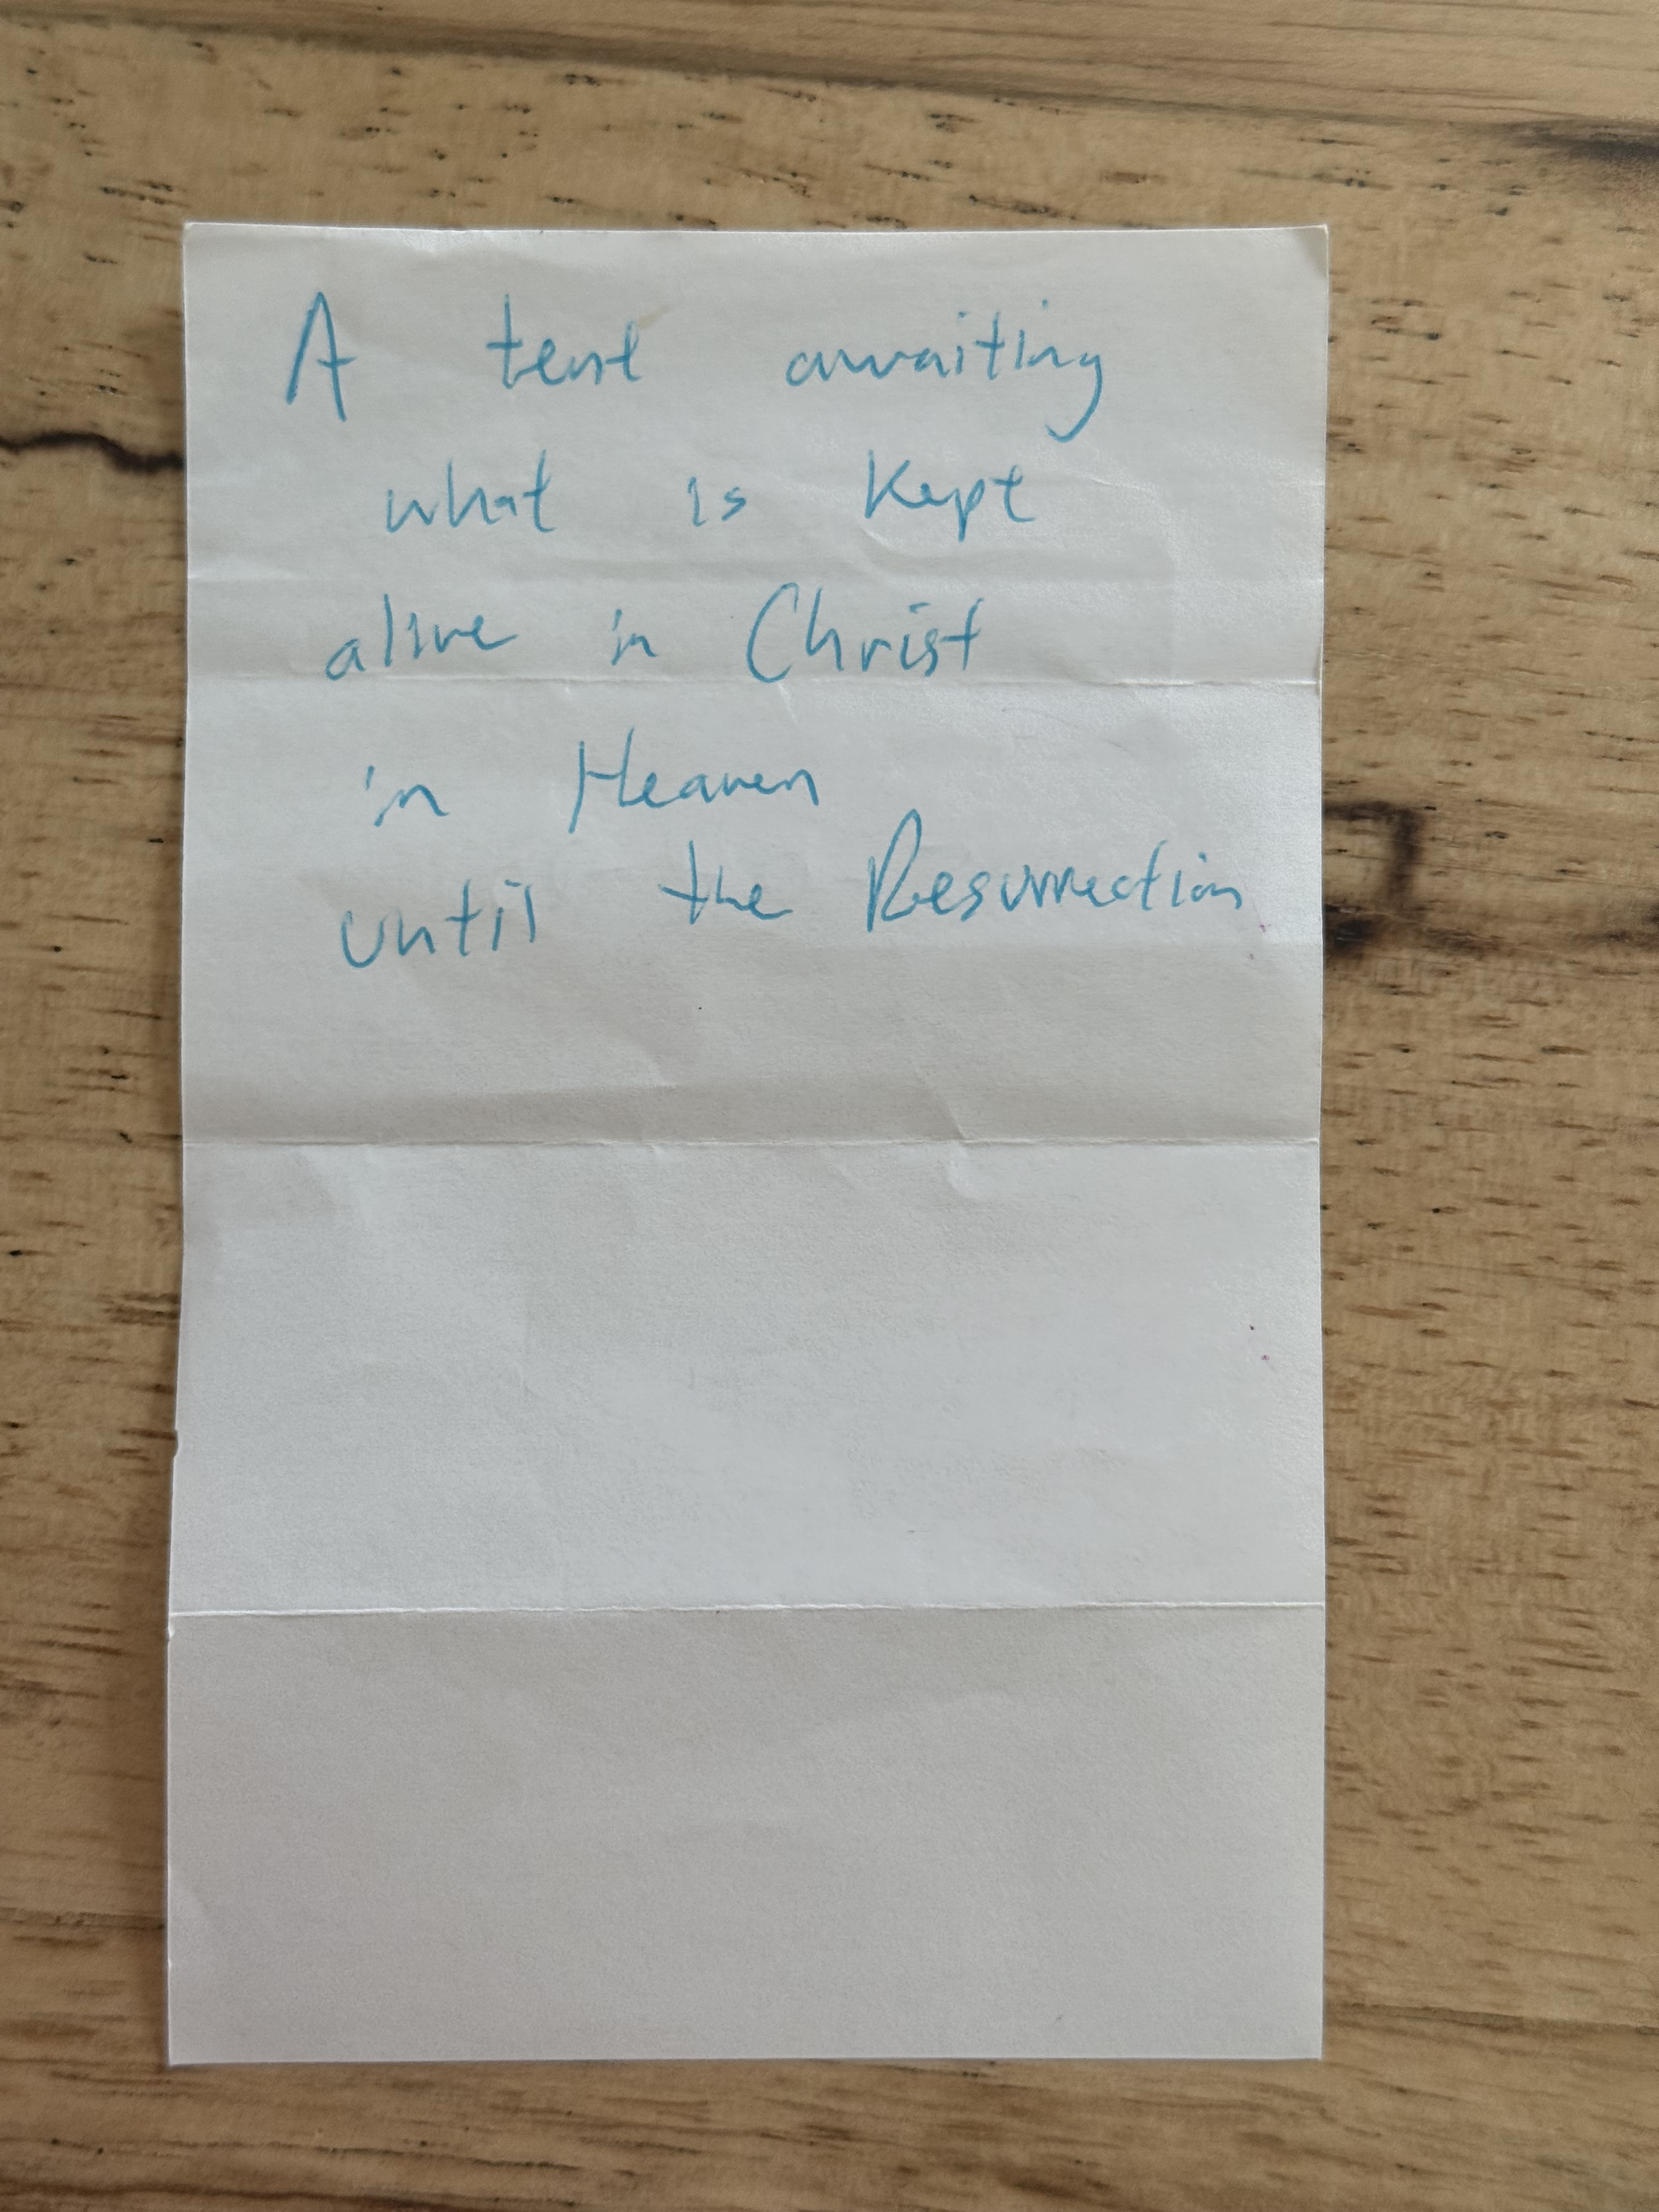 A tent awaiting
what is kept
alive in Christ
in Heaven
until the Resurrection